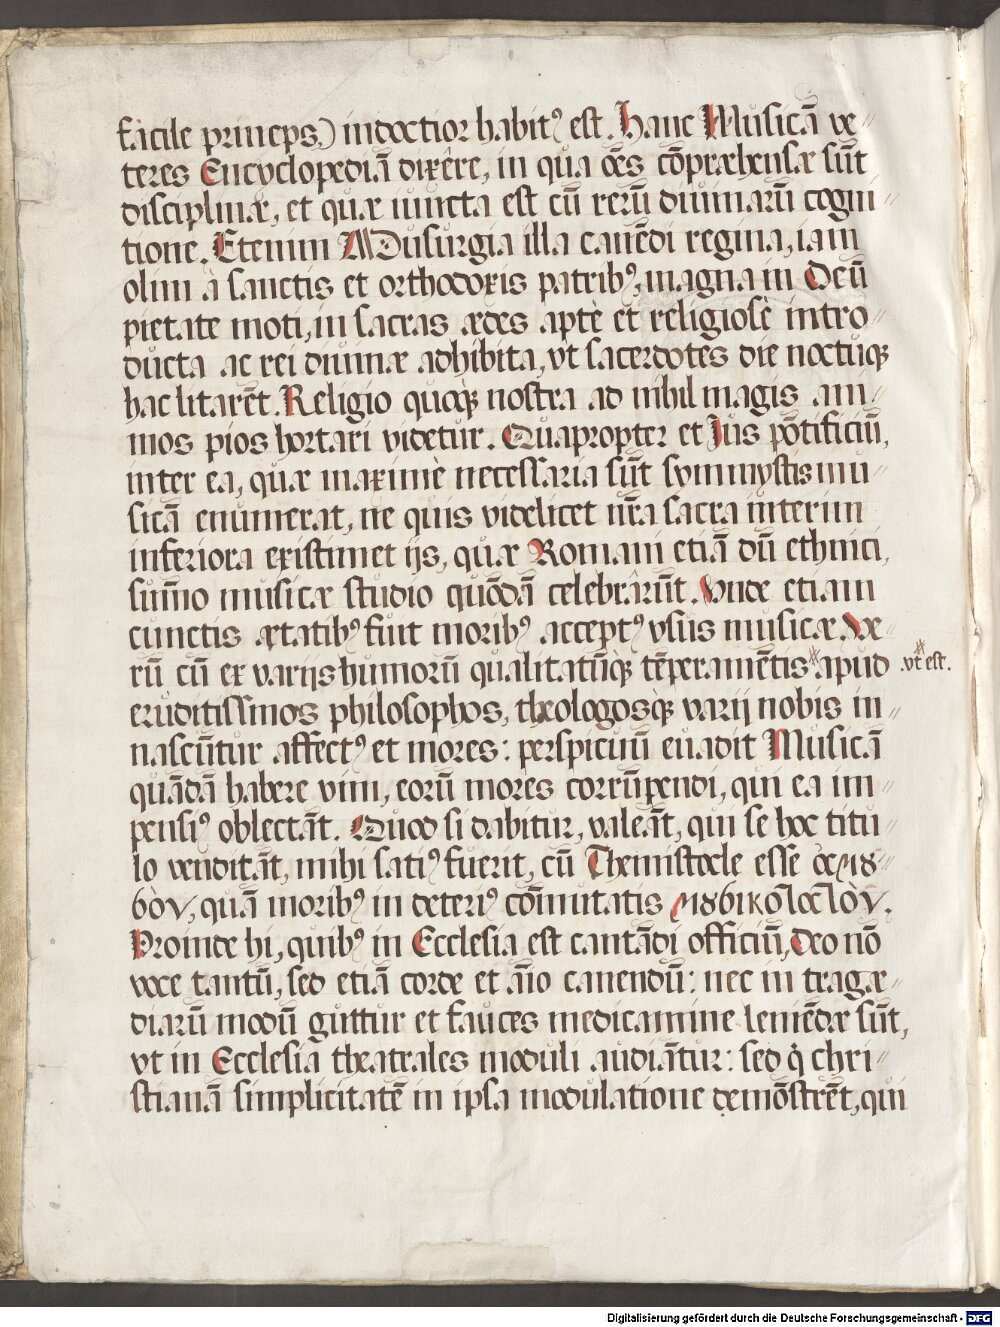 facile princeps) indoctior habitꝰ est. Hanc Musicā ve//
teres Encyclopediā dixêre, in qua oēs cōpræhensæ sūt
disciplinæ, et quæ iuncta est cū rerū diuinarū cogni//
tione. Etenim Musurgia illa canēdi regina, iam
olim à sanctis et orthodoxis patribꝰ, magna in Deū
pietate moti, in sacras ædes aptè et religiosè intro//
ducta ac rei diuinæ adhibita, vt sacerdotes die noctuqꝫ
hac litarēt. Religio quoqꝫ nostra ad nihil magis ani//
mos pios hortari videtur. Quapropter et Jus pōtificiū,
inter ea, quæ maximè necessaria sūt symmystis mu//
sicā enumerat, ne quis videlicet nr̄a sacra interim
inferiora existimet ijs, quæ Romani etiā dū ethnici,
sum̄o musicæ studio quōdā celebrârūt. Vnde etiam
cunctis ætatibꝰ fuit moribꝰ acceptꝰ vsus musicæ. Ve
rū cū ex varijs humorū qualitatūqꝫ tēperamētis # apud
# vt est.
eruditissimos philosophos, theologosqꝫ varij nobis in//
nascūtur affectꝰ et mores: perspicuū euadit Musicā
quādā habere vim, eorū mores corrūpendi, qui ea im//
pensiꝰ oblectāt. Quod si dabitur, valeāt, qui se hoc titu//
lo venditāt, mihi satiꝰ fuerit, cū Themistocle esse ἄμȣ//
σον, quā moribꝰ in deteriꝰ cōmutatis μȣσικόλαλον.
Proinde hi, quibꝰ in Ecclesia est cantādi officiū, Deo nō
voce tantū, sed etiā corde et aīo canendū: nec in tragæ//
diarū modū guttur et fauces medicamine leniēdæ sūt,
vt in Ecclesia theatrales moduli audiātur: sed q̇ chri//
stianā simplicitatē in ipsa modulatione demōstrēt, qui
Digitalisierung gefördert durch die Deutsche Forschungsgemeinschaft - DFG